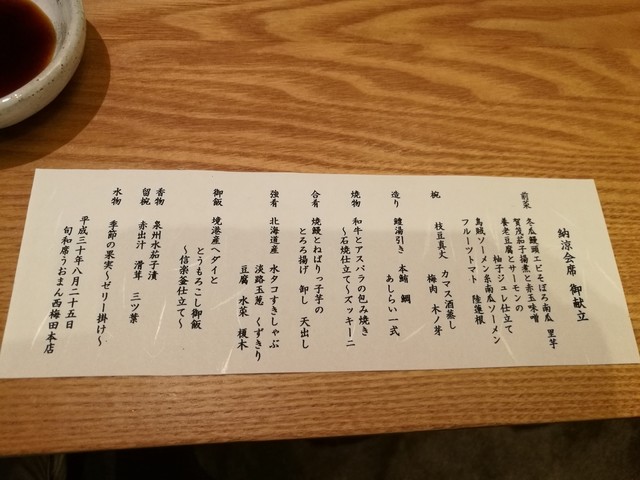 納涼会席 御献立
前菜 冬瓜饅頭エビそぼろ南瓜 里芋
賀茂茄子揚煮と赤玉味噌
養老豆腐とサーモンの
柚子ジュレ仕立て
烏賊ソーメン糸南瓜ソーメン
フルーツトマト 陸蓮根
椀 枝豆真丈 カマス酒蒸し
梅肉 木ノ芽
造り 鱧湯引き 本鮪 鯛
あしらい一式
焼物 和牛とアスパラの包み焼き
〜石焼仕立て〜ズッキーニ
合肴 焼鰻とねばりっ子芋の
とろろ揚げ 卸し 天出し
強肴 北海道産 水タコすきしゃぶ
淡路玉葱 くずきり
豆腐 水菜 榎木
御飯 境港産ヘダイと
とうもろこし御飯
〜信楽釜仕立て〜
香物 泉州水茄子漬
留椀 赤出汁 滑茸 三ツ葉
水物 季節の果実〜ゼリー掛け〜
平成三十年八月二十五日
旬和席うおまん西梅田本店